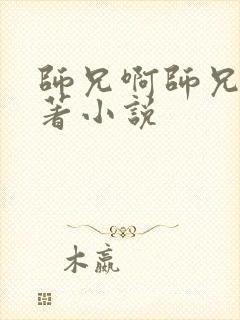 師兄啊師兄
著小說
木嬴